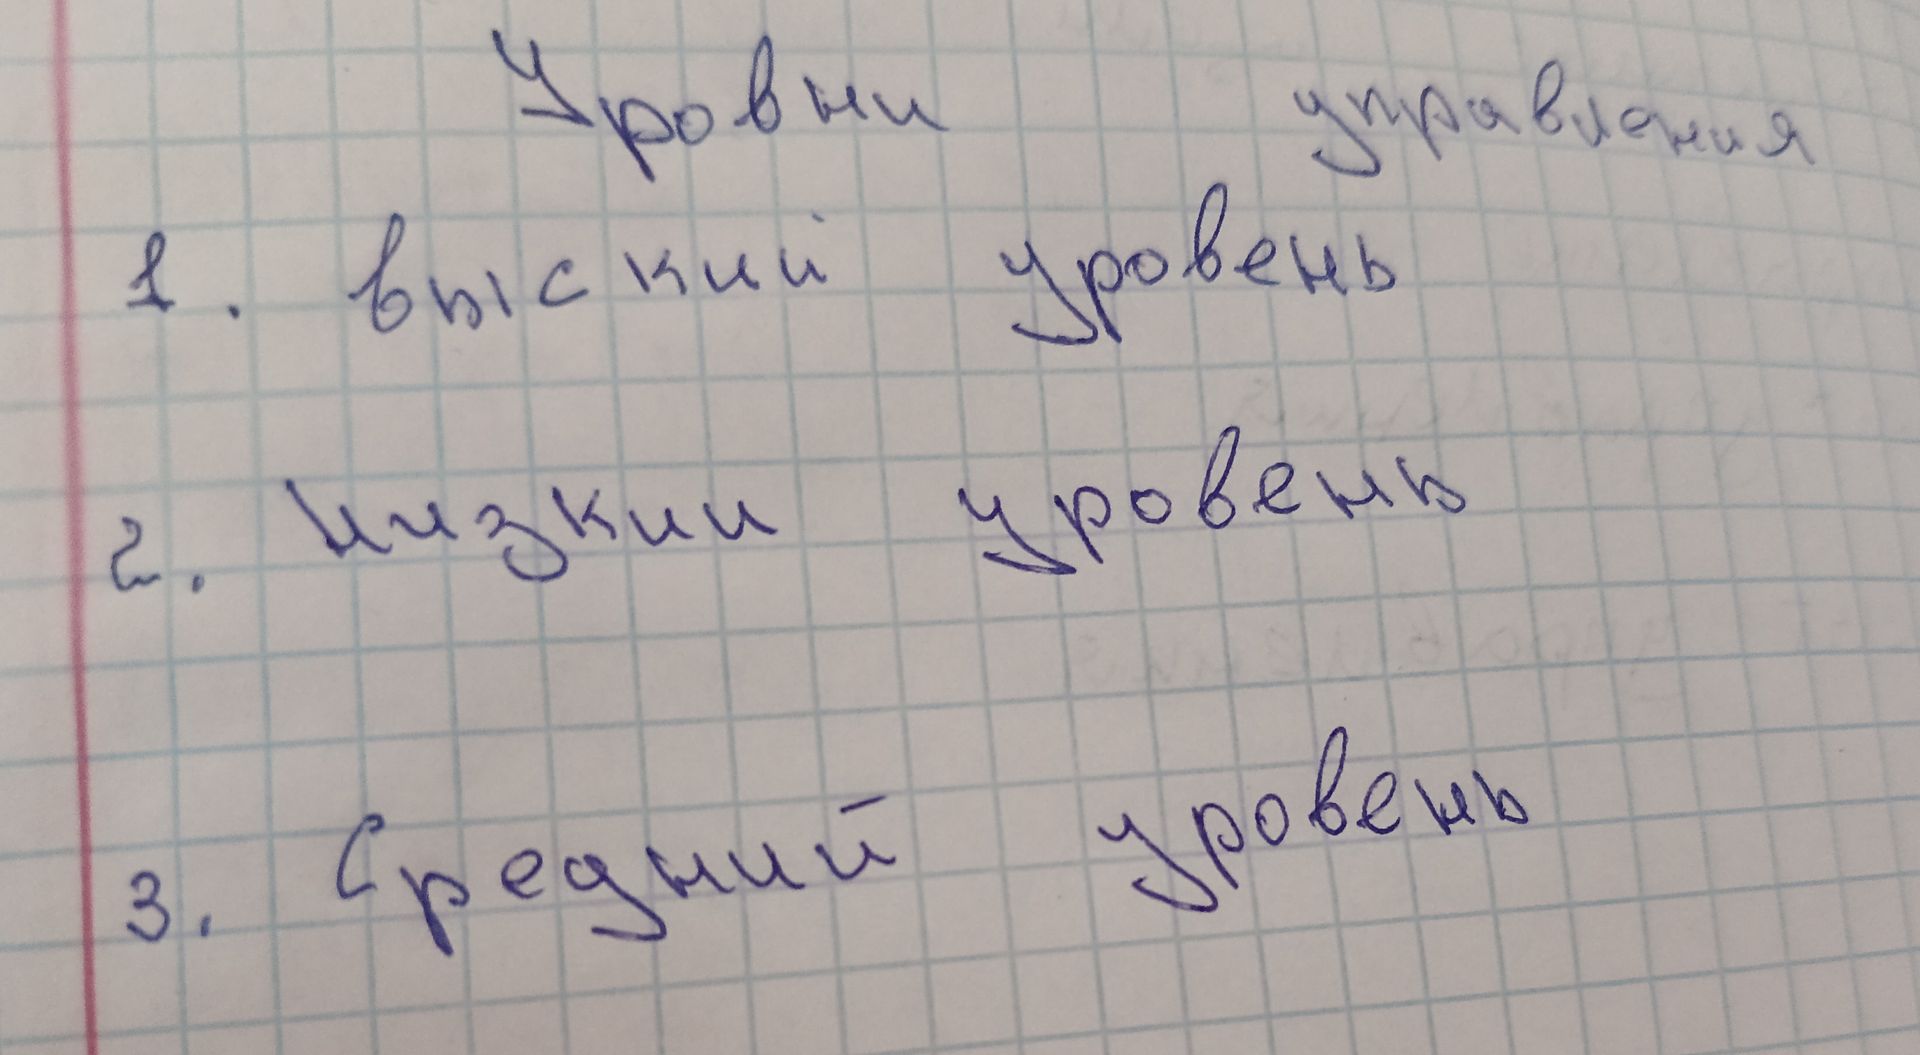 Уровни управления
1. выский уровень
2. Низкии уровень
3. Средний уровень